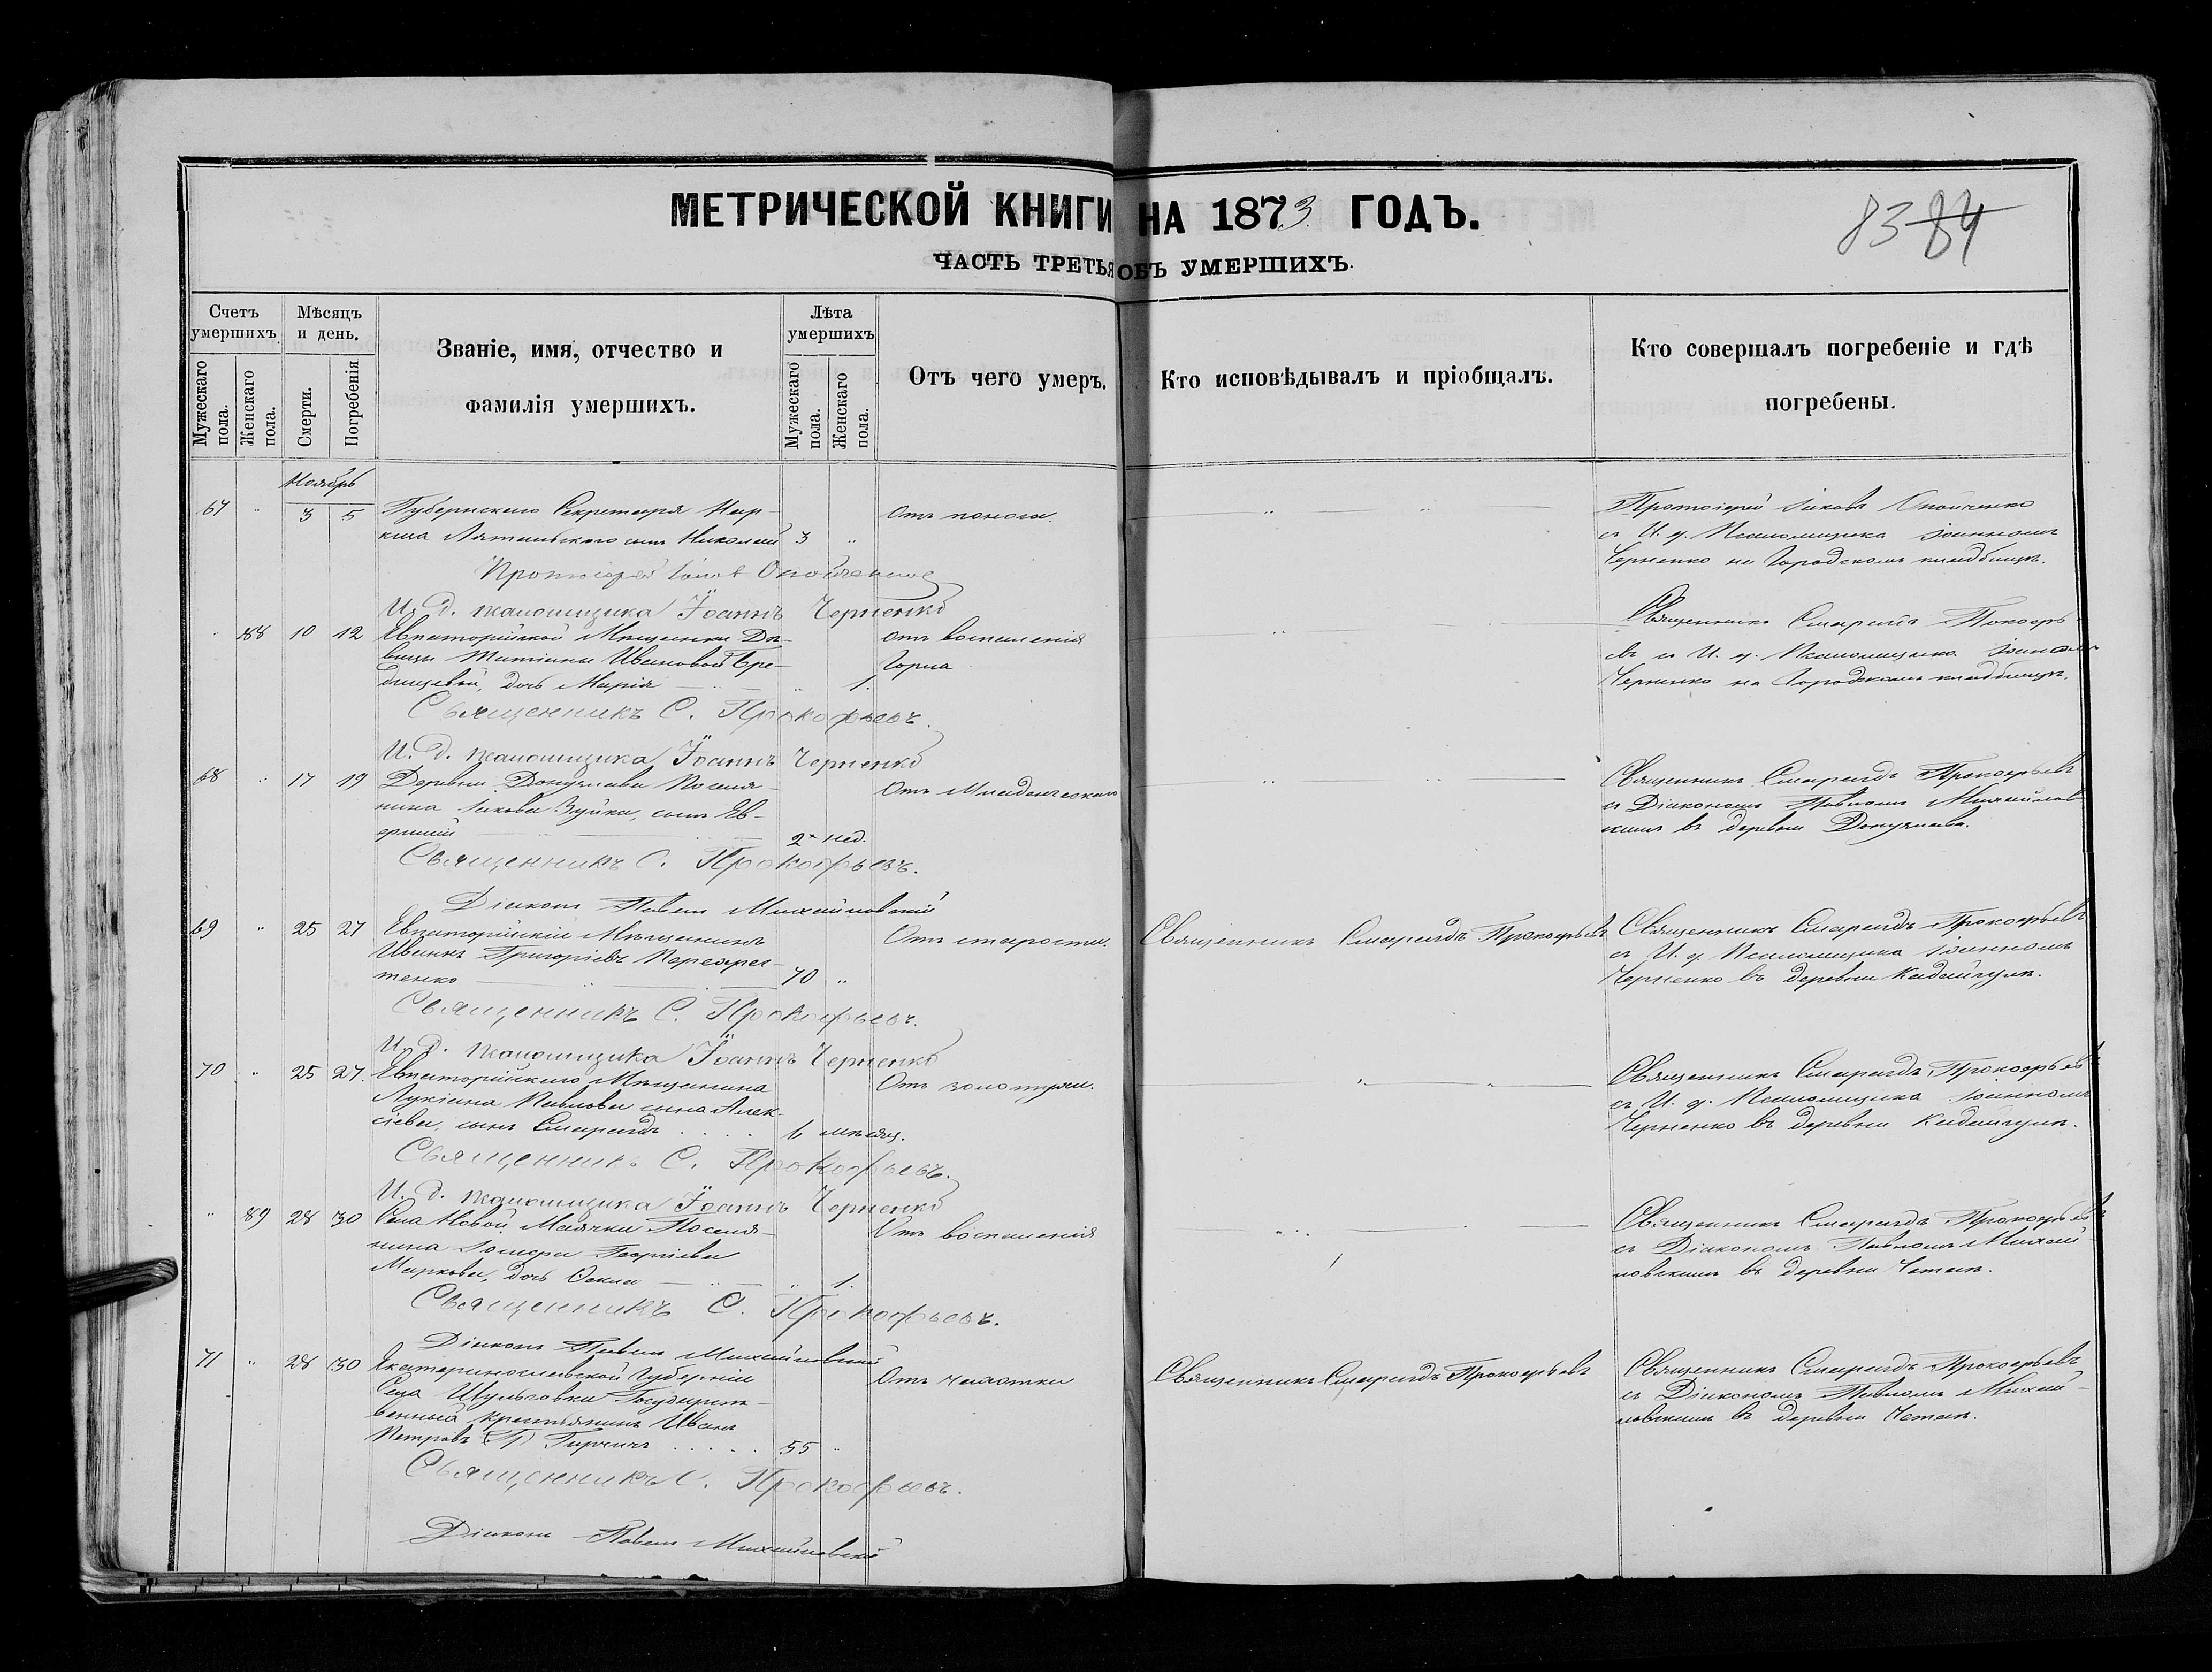 МЕТРИЧЕСКОЙ КНИГИ НА 1873 ГОДЪ.
83 84
ЧАСТЬ ТРЕТЬЯ ОБЪ УМЕРШИХЪ.
Счетъ умершихъ.
Мужескаго пола.
Женскаго пола.
Мѣсяцъ и день.
Смерти.
Погребенія
Званіе, имя, отчество и фамилія умершихъ.
Лѣта умершихъ
Мужескаго пола.
Женскаго пола.
Отъ чего умеръ.
Кто исповѣдывалъ и пріобщалъ.
Кто совершалъ погребеніе и гдѣ погребены.
Ноябрь
67 " 3 5
Губернскаго Секретаря
сынъ Николай 3 "
Отъ поноса.
Протоіерей Іаковъ
и И. д. Псаломщика Іоанномъ
Черненко на Городскомъ кладбищѣ.
Протоіерей
И. д. псаломщика Іоаннъ Черненко
" 88 10 12
Евпаторійской Мѣщанки Дѣ-
вицы Татіаны Ивановой
дочь Марія " 1.
Отъ воспаленія
горла
Священникъ Смарагдъ Прокофь-
евъ и И. д. Псаломщика Іоанномъ
Черненко на Городскомъ кладбищѣ.
Священникъ С. Прокофьевъ.
И. д. псаломщика Іоаннъ Черненко
68 " 17 19
Деревни Донузлава Поселя-
нина Іакова Зуйка, сынъ Ев-
фимій 2 нед.
Отъ Младенческаго
Священникъ Смарагдъ Прокофьевъ
съ Діакономъ Павломъ Михайлов-
скимъ въ деревни Донузлава.
Священникъ С. Прокофьевъ.
Діаконъ Павелъ Михайловскій
69 " 25 27
Евпаторійскій Мѣщанинъ
Иванъ Григоріевъ
тенко 70 "
Отъ старости.
Священникъ Смарагдъ Прокофьевъ
Священникъ Смарагдъ Прокофьевъ
и И. д. Псаломщика Іоанномъ
Черненко въ деревни
Священникъ С. Прокофьевъ.
И. д. псаломщика Іоаннъ Черненко
70 " 25 27.
Евпаторійскаго Мѣщанина
Лукіана Павлова сына Алек-
сіева, сынъ Смарагдъ 6 мѣсяц.
Отъ золотухи.
Священникъ Смарагдъ Прокофьевъ
съ И. д. Псаломщика Іоанномъ
Черненко въ деревни
Священникъ С. Прокофьевъ.
И. д. псаломщика Іоаннъ Черненко
" 89 28 30
Села Новой Маячки Поселя-
нина Георгіева
Маркова, дочь " 1.
Отъ воспаленія
Священникъ Смарагдъ Прокофьевъ
съ Діакономъ Павломъ Михай-
ловскимъ въ деревни
Священникъ С. Прокофьевъ.
Діаконъ Павелъ Михайловскій
71 " 28 30
Екатеринославской Губерніи
Села Шульговки Государст-
венный крестьянинъ Иванъ
Петровъ 55 "
Отъ чахотки
Священникъ Смарагдъ Прокофьевъ
Священникъ Смарагдъ Прокофьевъ
съ Діакономъ Павломъ Михай-
ловскимъ въ деревни
Священникъ С. Прокофьевъ.
Діаконъ Павелъ Михайловскій